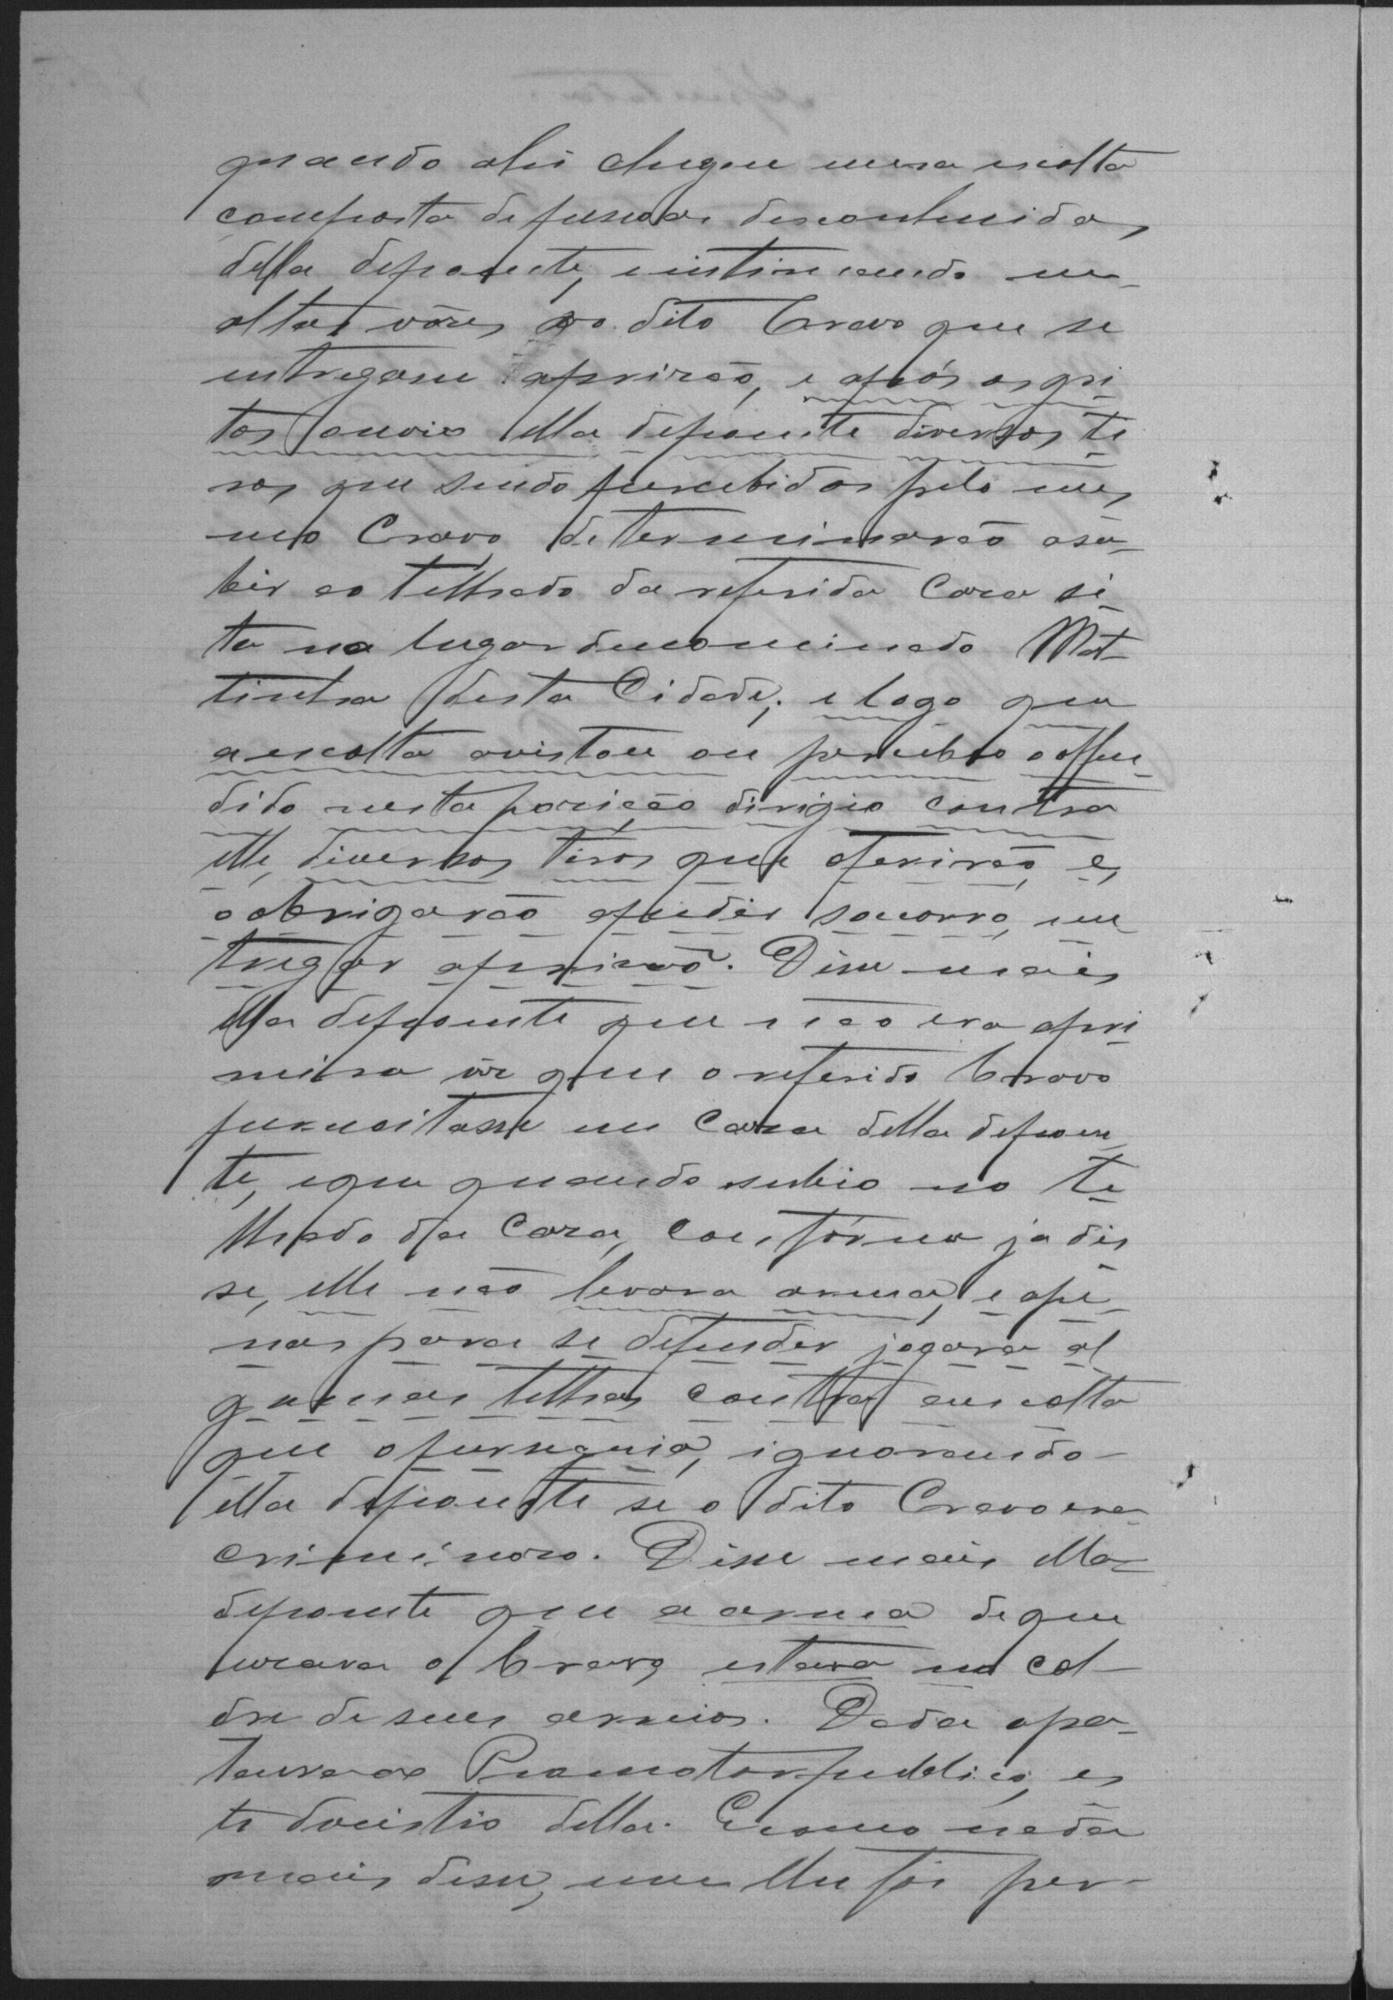 quando ahi chegou uma escolta
composta de pessoas desconhecidas
della depoente, intimando em
altas vózes ao dito Cravo que se
entregasse aprizão, e após os gri
tos ouvio ella depoente diversos ti
ros que sendo percebidos pelo mes
mo Cravo determinarão asu-
bir ao telhado da referida Caza si
ta no lugar denominado Mat
tinha desta Cidade; e logo que
a escolta avistou ou percebeo o offen
dido nesta pozição dirigio contra
elle, diversos tiros que oferirão, e,
o obrigarão apedir socorro, en
tregar aprizão. Disse mais
ella depoente que não era apri
meira vêz que o referido Cravo
pernoitasse em Caza della depoen
te, eque quando subio no te
lhado da Caza, confórme ja dis
se, elle não levava arma, e ape
nas para se defender jogava al
gumas telhas contra aescolta
que o perseguia, ignorando
ella depoente se o dito Cravo era
criminozo. Disse mais ella
depoente que a arma de que
uzava o Cravo estava no col-
dre de seus arreios. Dada apa-
lavra ao Promotor publico, es
te dezistio della. E como nada
mais disse, nem lhe foi per-